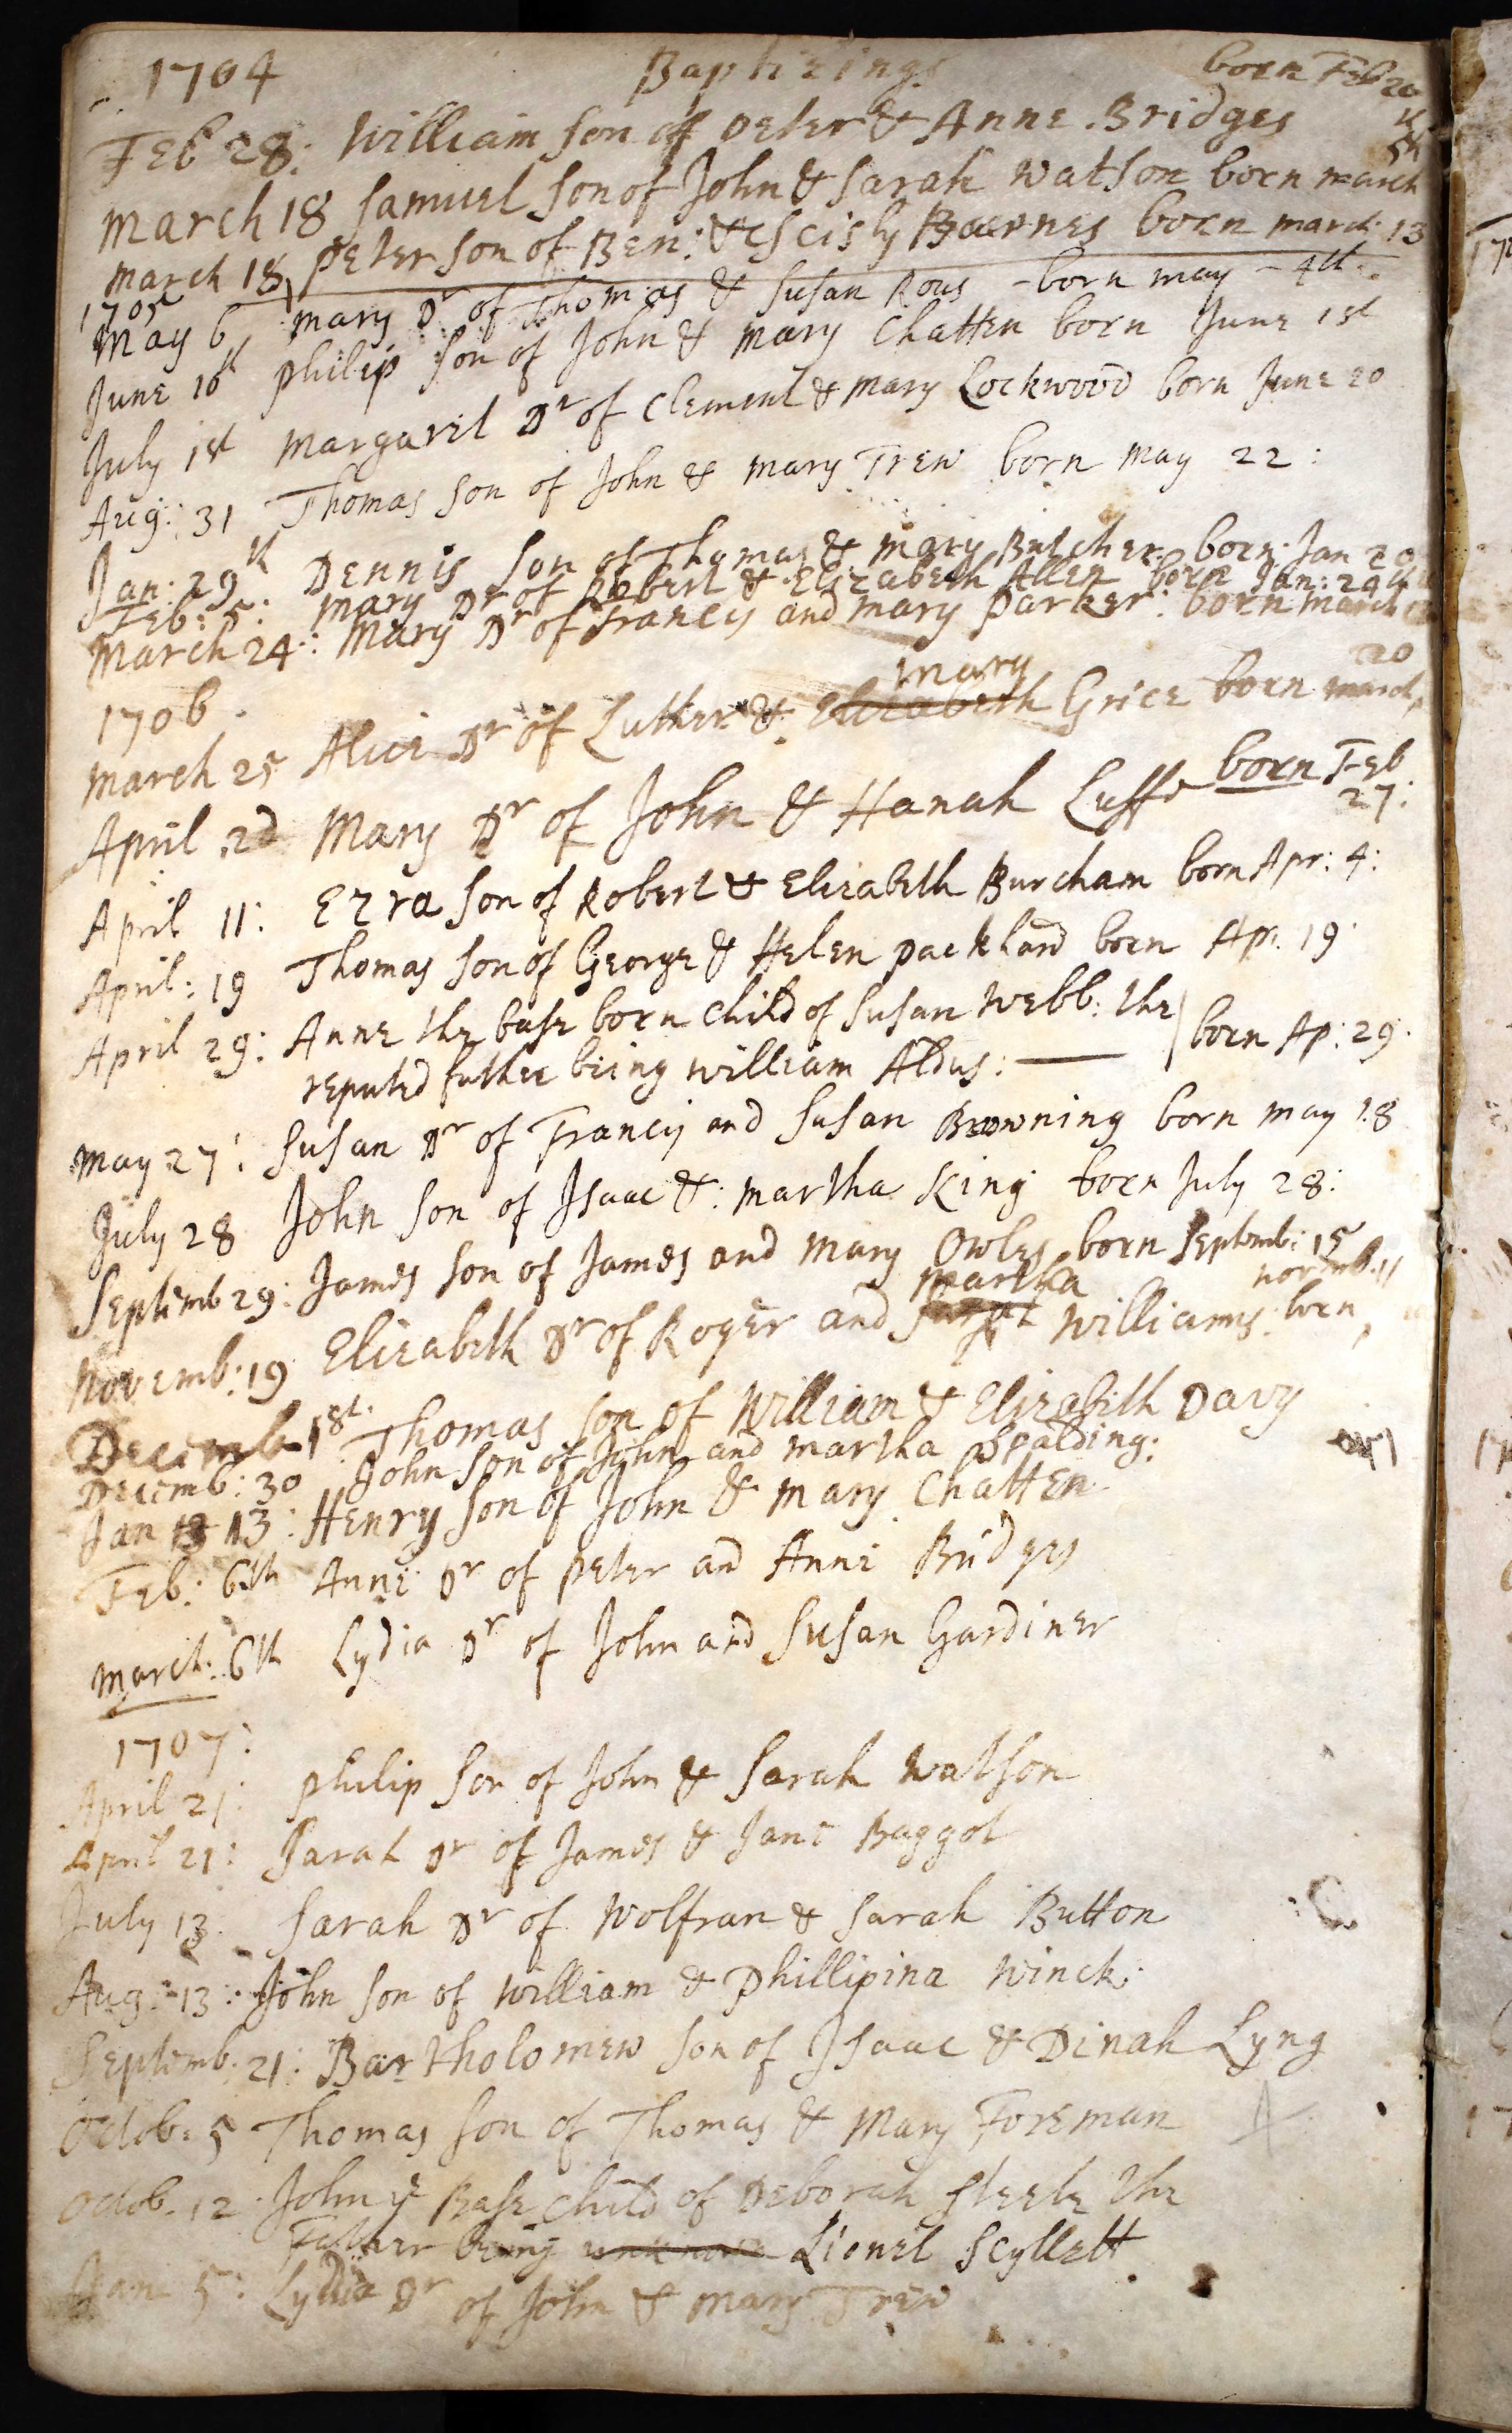 1704 Baptizings born Feb 20
Feb 28: William son of Peter & Anne Bridges
March 18 Samuel son of John & Sarah Watson born march 5th
March 18 Peter son of Ben: & Scisly Baernes born march 13
1705
May 6 mary Dr of Thomas & Susan Rous - born may - 4th
June 16th Philip son of John & mary Chatten born June 1st
July 1st Margaret Dr of Clement & Mary Lockwood born June 20
Aug: 31 Thomas son of John & mary Trew born may 22:
Jan: 29th Dennis son of Thomas & mary Butcher born Jan 20
Feb: 5: mary Dr of Robert & Elizabeth Allen born Jan: 29
March 24: Mary Dr of Francis and mary Parker: born march
1706
March 25 Alice Dr of Luther & Elizabeth mary Grice born march 20
April 2d Mary Dr of John & Hanah Luffe born Feb 27:
April 11: Ezra son of Robert & Elizabeth Burcham born Apr: 4:
April: 19 Thomas son of George & Helen Packhard born Ap: 19
April 29: Anne the base born child of Susan Webb: the
reputed father being William Aldus: born Ap: 29
May 27: Susan Dr of Francis and Susan Browning born may 18
July 28 John son of Isaac &: martha King born July 28:
Septemb 29: James son of James and Mary Owles born Septemb: 15
Novemb: 19 Elizabeth Dr of Roger and martha Williams born novemb. 11
Decemb 1st. Thomas son of William & Elizabeth Davy
Decemb: 30 John son of John and martha Spalding:
Jan 13 13: Henry son of John & mary Chatten
Feb: 6th Anne Dr of Peter and Anne Bridges
March: 6th Lydia Dr of John and Susan Gardiner
1707:
April 21: Philip son of John & Sarah Watson
April 21: Sarah Dr of James & Jane Baggot
July 13 Sarah Dr of Wolfran & Sarah Button
Aug: 13: John son of William & Phillipina Winck:
Septemb: 21: Bartholomew son of Isaac & Dinah Lyng
Octob: 5 Thomas son of Thomas & Mary Foreman
Octob. 12 John ye Base child of Deborah Steele the
Father being unknown Lionel Scyllett
Jan 5: Lydia Dr of John & mary Trew